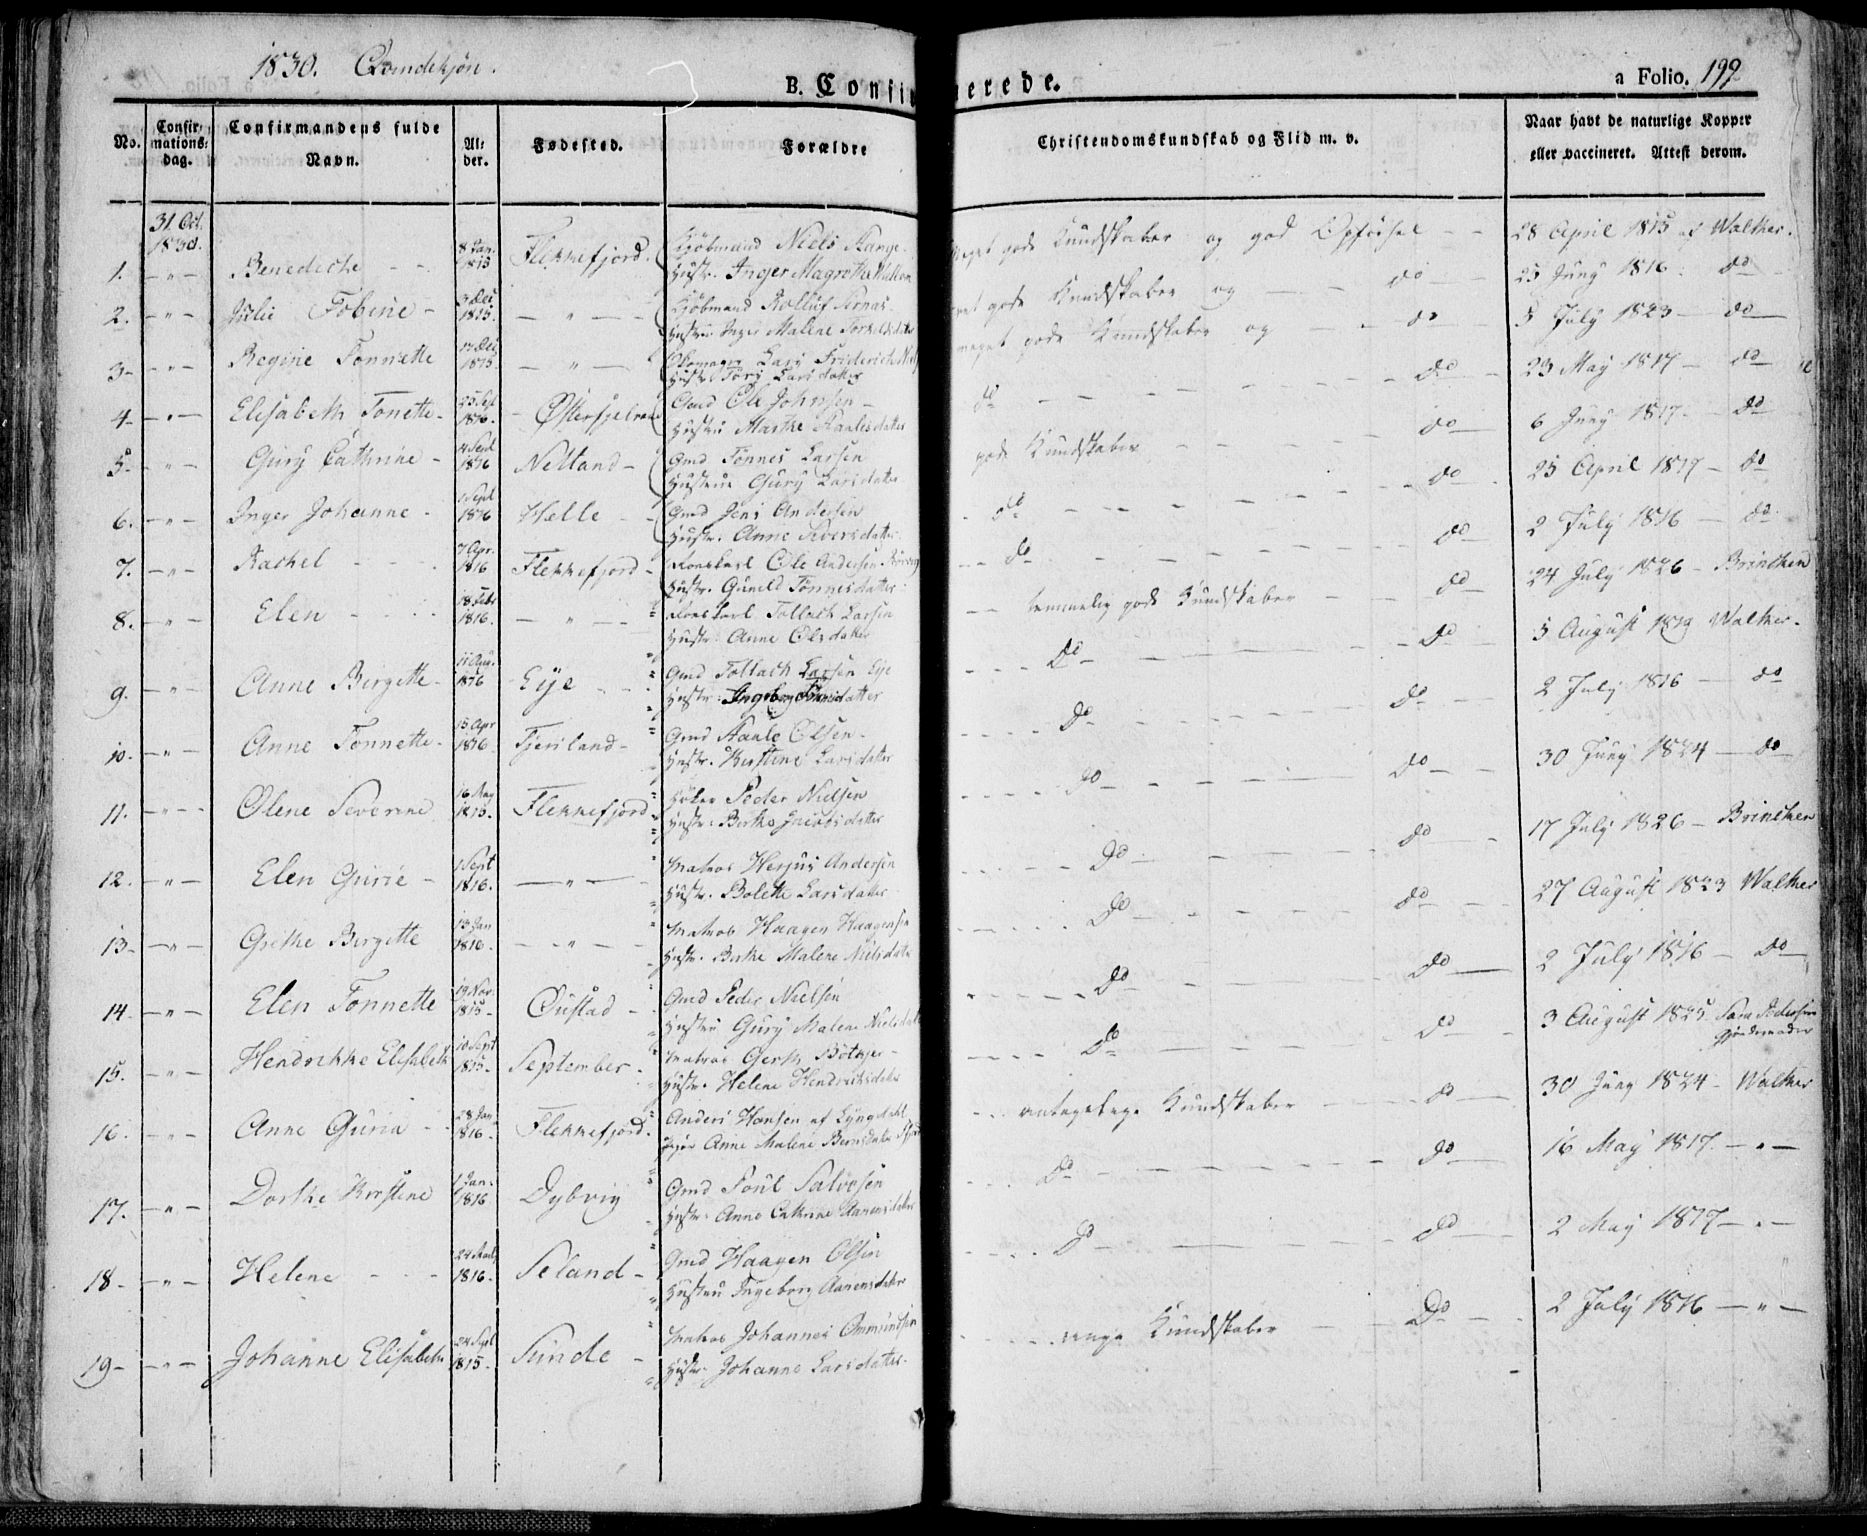 1830. Qvindekjøn.
B. Confirmerede.
a Folio. 199
No.
Confir-
mations-
dag.
Confirmandens fulde
Navn.
Al-
der.
Fødested.
Forældre
Christendomskundskab og Flid m. v.
Naar havt de naturlige Kopper
eller vaccineret. Attest derom.
31. Oct.
1830.
1. — " — Benedicte - - 8 Jan. 1815 Flekkefjord. Kjøbmand Niels Stange
Hustr. Inger Magrethe
Meget gode Kundskaber og god Opførsel - - 28 April 1815 af Walther.
2. — " — Julie Tobine - 3 Dec 1815. — " — Kjøbmand Rolluf
Hustru Inger Malene Torkelsdatter
gode Kundskaber og — do — 25 Juny 1816. do
3 - — " — Regine Tonnette 1815. — " — Skomager Lars Friderich
Hustr. Larsdatter
meget gode Kundskaber og - do 5 July 1823 — do
4 - — " — Elisabeth Tonette - 25 Sept 1816. - Gmd Ole Johnsen -
Hustru Marthe
do - - - do - 23 May 1817 — do
5 - — " — Gury Cathrine - 4 Sept 1816 Netland - Gmd Tønnes Larsen
Hustrue Gury Larsdatter
gode Kundskaber - - - do 6 Juny 1817 - do
6. — " — Inger Johanne - 1 Sept 1816 Helle - - Gmd Jens Andersen
Hustr. Anne Siversdatter
- do - - - do - 25 April 1817 - do
7. — " — Rachel - - - 7 Apr. 1816 Flekkefjord - Ole Andersen
Hustr. Gunild Tønnesdatter
- - do - - - do 2 July 1816 — do
8. — " — Elen - - - 18 Febr 1816. — " — Tollach Larsen
Hustr: Anne Olsdatter
- - temmelig gode Kundskaber - - do 24 July 1826 - Brinchen
9. — " — Anne Birgitte - 11 Aug. 1816 Eye - - Gmd Tollach Larsen Eye
Hustr:
- - - do - - - do 5 August 1819 Walther.
10. — " — Anne Tonnette - 15 Apr 1816. Fjeriland - Gmd Staale Olsen -
Hustr. Kirstine Larsdatter
- - - do - - - do 2 July 1816 — do
11. — " — Olene Severine 16 May 1815. Flekkefjord Høker Peder Nielsen
Hustr: Berthe Jacobsdatter
- - - do - - - do - 30 Juny 1824 — do
12. — " — Elen Gurie - 1 Sept 1816. — " — Matros Herjus Andersen
Hustr. Bolette Larsdatter
- - - do - - - do - 17 July 1826 - Brinchen
13 - — " — Grethe Birgitte 13 Jan 1816. — " — Matros Haagen Haagensen
Hustr. Berthe Malene Nielsdatter
- - - do - - - do - 27 August 1823 Walther
14. — " — Elen Tonnette 19 Nov. 1815 - Øustad - Gmd Peder Nielsen
Hustru Gury Malene
- - - do - - - do — 2 July 1816 - do
15. — " — Hendrikke Elisabeth 10 Sept 1815 - September - Matros Gerth
Hustr. Helene Hendricksdatter
- - - do - - - do - 3 August 1825
16. — " — Anne Guria - 28 Jan 1816 - Flekkefjord. Anders Hansen af Lyngdahl
Pige Anne Malene
- - - antagelige Kundskaber - - do — 30 Juny 1824 - Walther
17. — " — Dorthe Kirstine 1 Jan. 1816 Dybvig Gmd Poul Salvesen
Hustr: Anne Cathrine Aanensdatter
- - - do - - - do — 16 May 1817 — " —
18 - — " — Helene - - - 24 1816. Seland - Gmd Haagen Olsen
Hustru Ingeborg Aanensdatter
- - - do - - - do — 2 May 1817 — " —
19 - — " — Johanne Elisabeth 24 Sept 1815 - Sunde - Matros Johannes Ommundsen
Hustr. Johanne Larsdatter -
- - - Kundskaber - - do - 2 July 1816 — " —